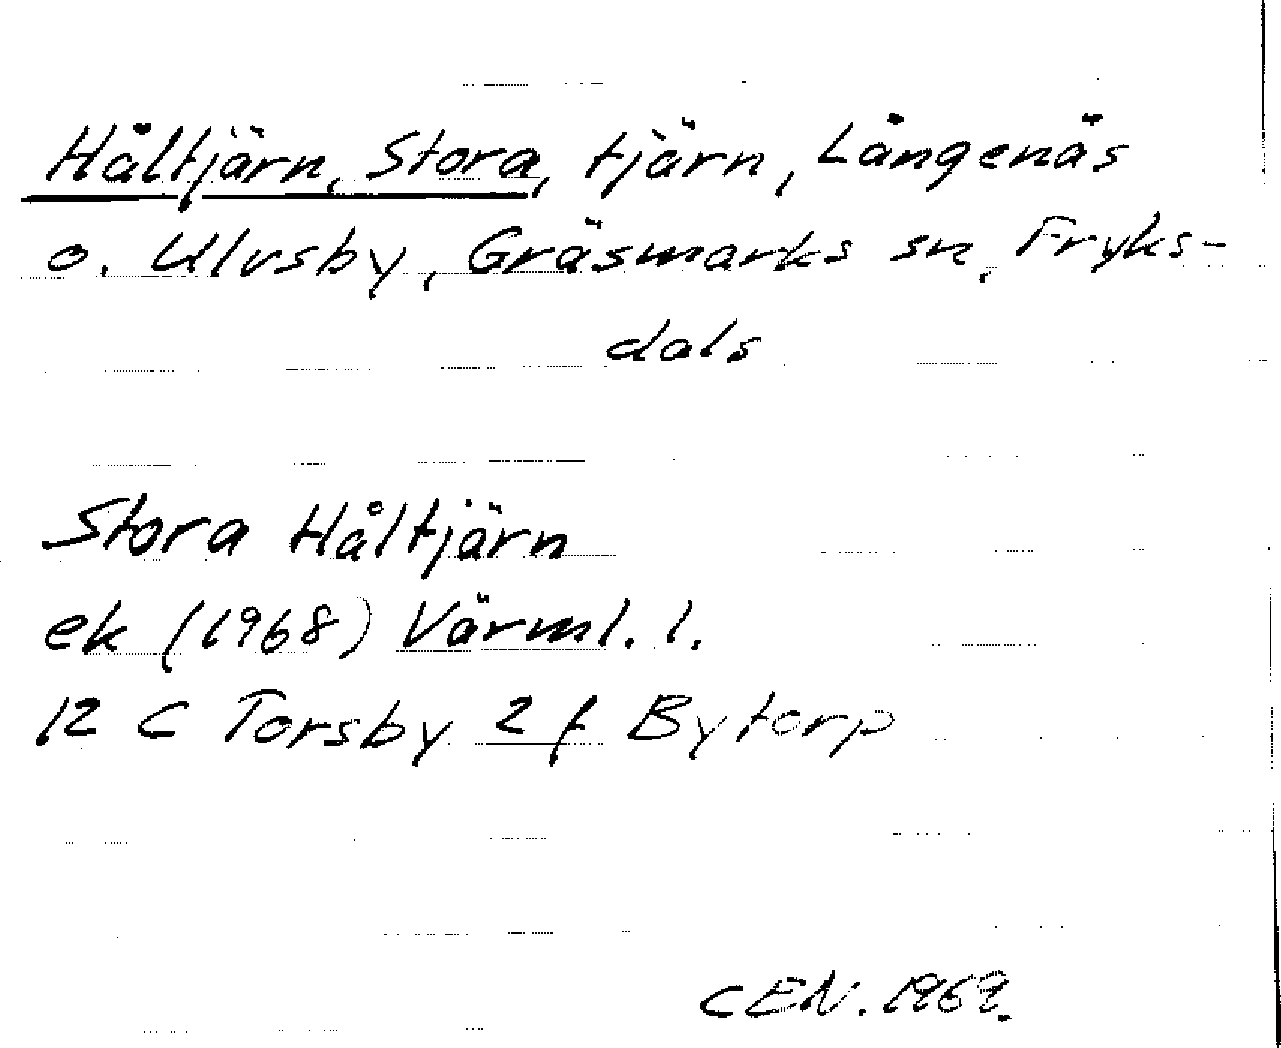 Håltjärn, Stora, tjärn, Längenäs
o. Ulvsby, Gräsmarks sn, Fryks-
dals
Stora Håltjärn
ek (1968) Värml. l.
12 C Torsby 2 f Bytorp
CEN. 1969.